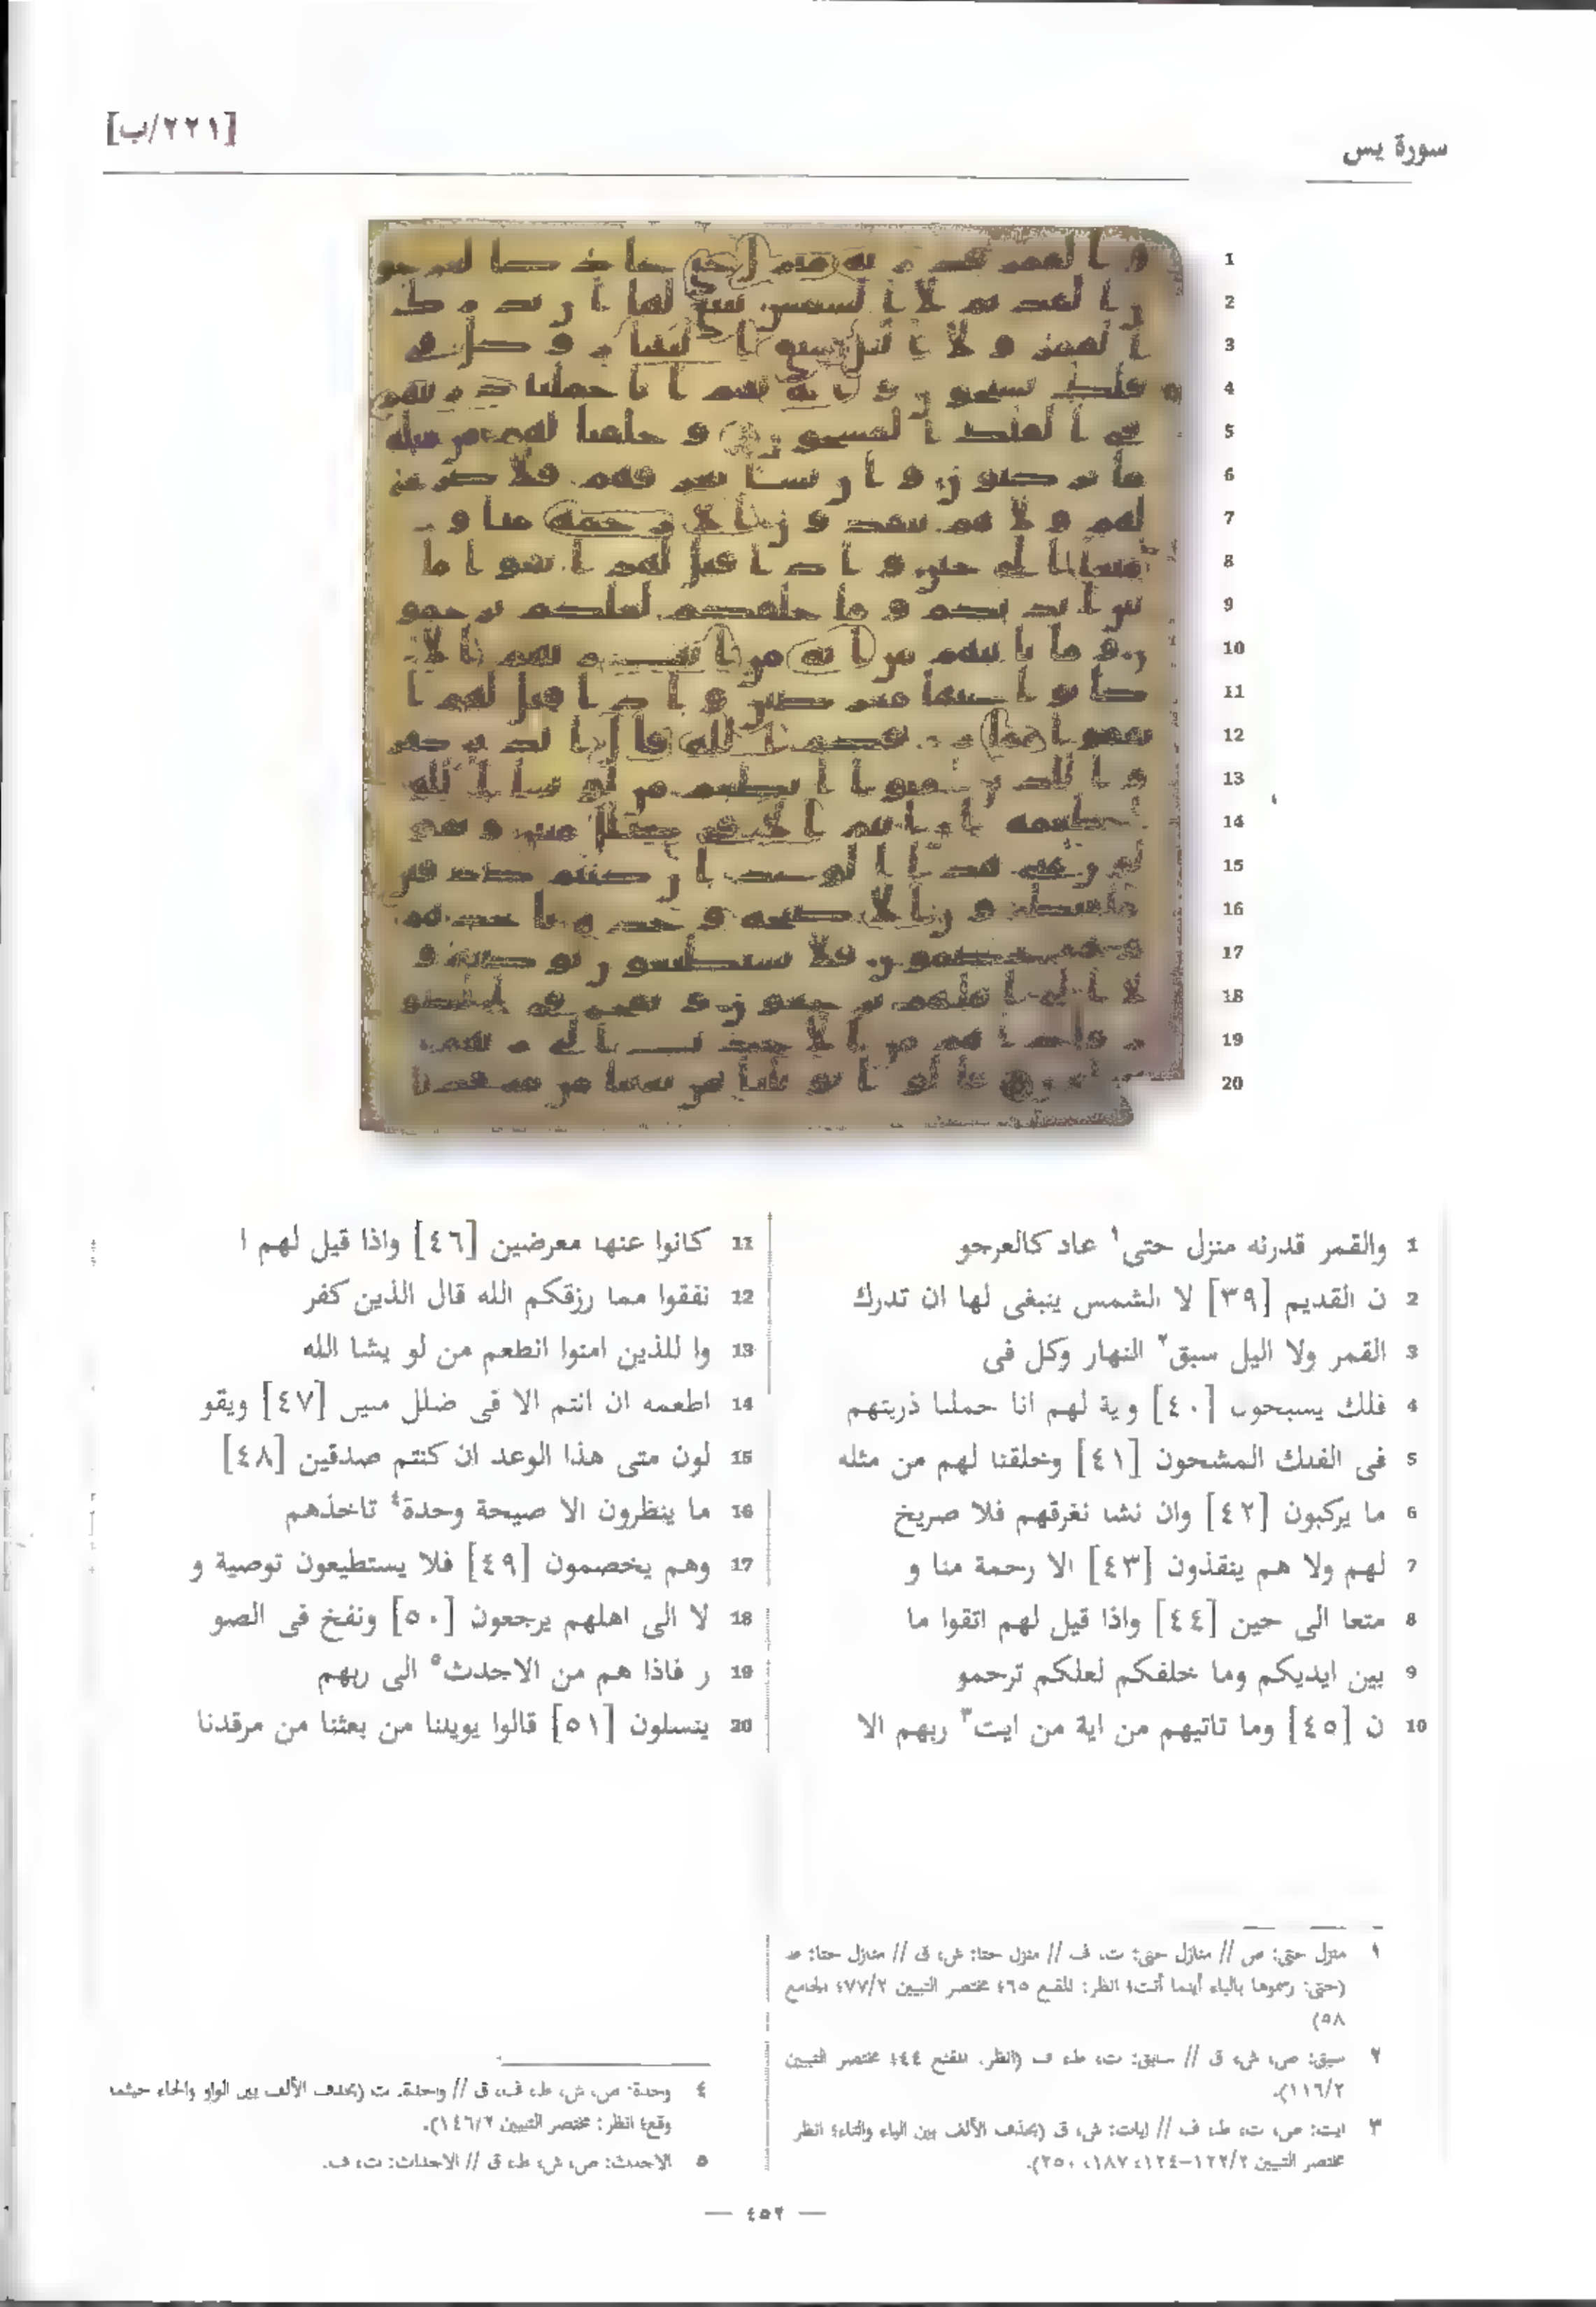 سورة يس
[٢٢١/ب]
1 والقمر قدرنه منزل حتى١ عاد كالعرجو
2 ن القديم [٣٩] لا الشمس ينبغى لها ان تدرك
3 القمر ولا اليل سبق٢ النهار وكل فى
4 فلك يسبحون [٤٠] وية لهم انا حملنا ذريتهم
5 فى الفلك المشحون [٤١] وخلقنا لهم من مثله
6 ما يركبون [٤٢] وان نشا نغرقهم فلا صريخ
7 لهم ولا هم ينقذون [٤٣] الا رحمة منا و
8 متعا الى حين [٤٤] واذا قيل لهم اتقوا ما
9 بين ايديكم وما خلفكم لعلكم ترحمو
10 ن [٤٥] وما تاتيهم من اية من ايت٣ ربهم الا
11 كانوا عنها معرضين [٤٦] واذا قيل لهم ا
12 نفقوا مما رزقكم الله قال الذين كفر
13 وا للذين امنوا انطعم من لو يشا الله
14 اطعمه ان انتم الا فى ضلل مبين [٤٧] ويقو
15 لون متى هذا الوعد ان كنتم صدقين [٤٨]
16 ما ينظرون الا صيحة وحدة٤ تاخذهم
17 وهم يخصمون [٤٩] فلا يستطيعون توصية و
18 لا الى اهلهم يرجعون [٥٠] ونفخ فى الصو
19 ر فاذا هم من الاجدث٥ الى ربهم
20 ينسلون [٥١] قالوا يويلنا من بعثنا من مرقدنا
١ منزل حتى: ص // منازل حتى: ت، ف // منزل حتا: ش، ق // منازل حتا: ط
(حتى: رسموها بالياء أينما أتت؛ انظر: المقنع ٤٦٥ مختصر التبيين ٤٧٧/٢؛ الجامع
٥٨)
٢ سبق: ص، ش، ق // سابق: ت، ط، ف (انظر: المقنع ٤٤؛ مختصر التبيين
١١٦/٢).
٣ ايت: ص، ت، ط، ف // ايات: ش، ق (بحذف الألف بين الياء والتاء؛ انظر
مختصر التبيين ١٢٢/٢-١٢٤، ١٨٧، ٢٥٠).
٤ وحدة: ص، ش، ط، ف، ق // واحدة: ت (بحذف الألف بين الواو والحاء حيثما
وقع؛ انظر: مختصر التبيين ١٤٦/٢).
٥ الاجدث: ص، ش، ط، ق // الاجداث: ت، ف.
— ٤٥٢ —